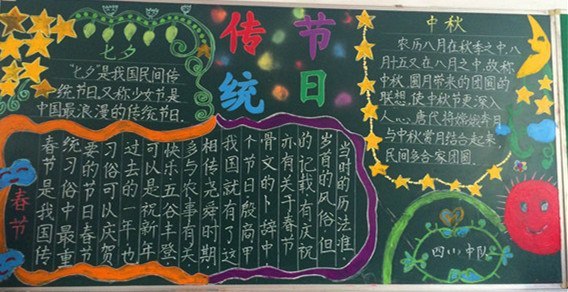 传统
节日
七夕
"七夕"是我国民间传
统节日,又称少女节,是
中国最浪漫的传统节日.
中秋
农历八月在秋季之中,八
月十五又在八月之中,故称
中秋,圆月带来的团圆的
联想,使中秋节更深入
人心,唐代将嫦娥奔月
与中秋赏月结合起来,
民间多合家团圆.
春节
春节是我国传
统习俗中最重
要的节日春节
习俗可以庆贺
过去的一年也
可以是祝新年
快乐五谷丰登
多与农事有关
相传尧舜时期
我国就有了这
个节日殷商甲
骨文的卜辞中
亦有关于春节
的记载有庆祝
岁首的风俗但
当时的历法准
四(1)中队